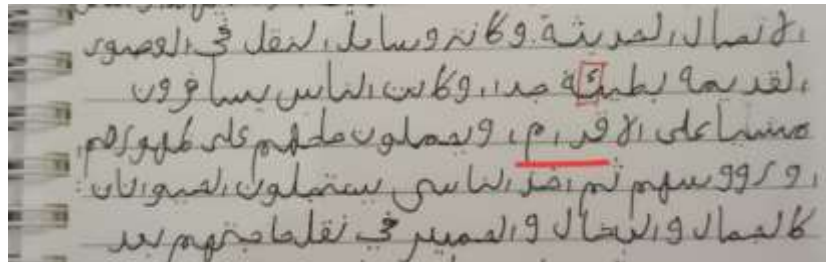 الاتصال الحديثة. وكانت وسايل النقل في العصور
القديمة بطيئة جدا، وكانت الناس يسافرون
مشيا على الاقدام، ويحملون على ظهورهم
و رؤوسهم ثم اخذ الناس يستعملون الحيوانات:
كالجمال والبغال والحمير في نقل حاجتهم بعد